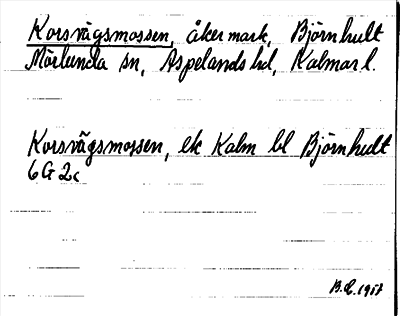 Korsvägsmossen, åkermark, Björnhult
Mörlunda sn, Aspelands hd, Kalmar l.
Korsvägsmossen, ek Kalm bl Björnhult
6G 2c